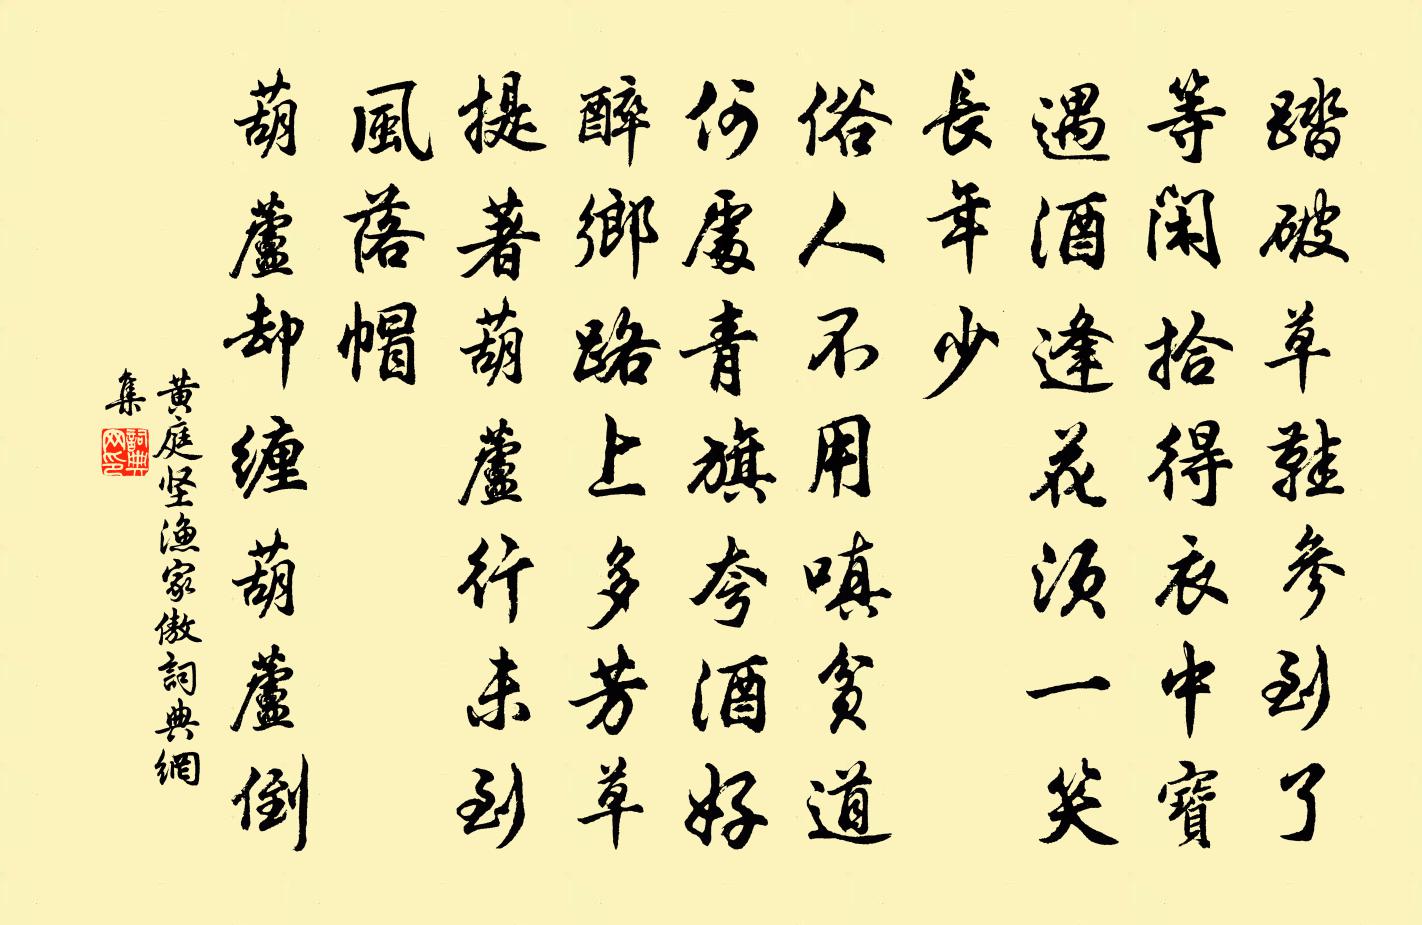 踏破草鞋參到了
等閑拾得衣中寶
遇酒逢花須一笑
長年少
俗人不用嗔貧道
何處青旗夸酒好
醉鄉路上多芳草
提著葫蘆行未到
風落帽
葫蘆却缠葫蘆倒
黃庭坚漁家傲詞典網
集
詞典
网印